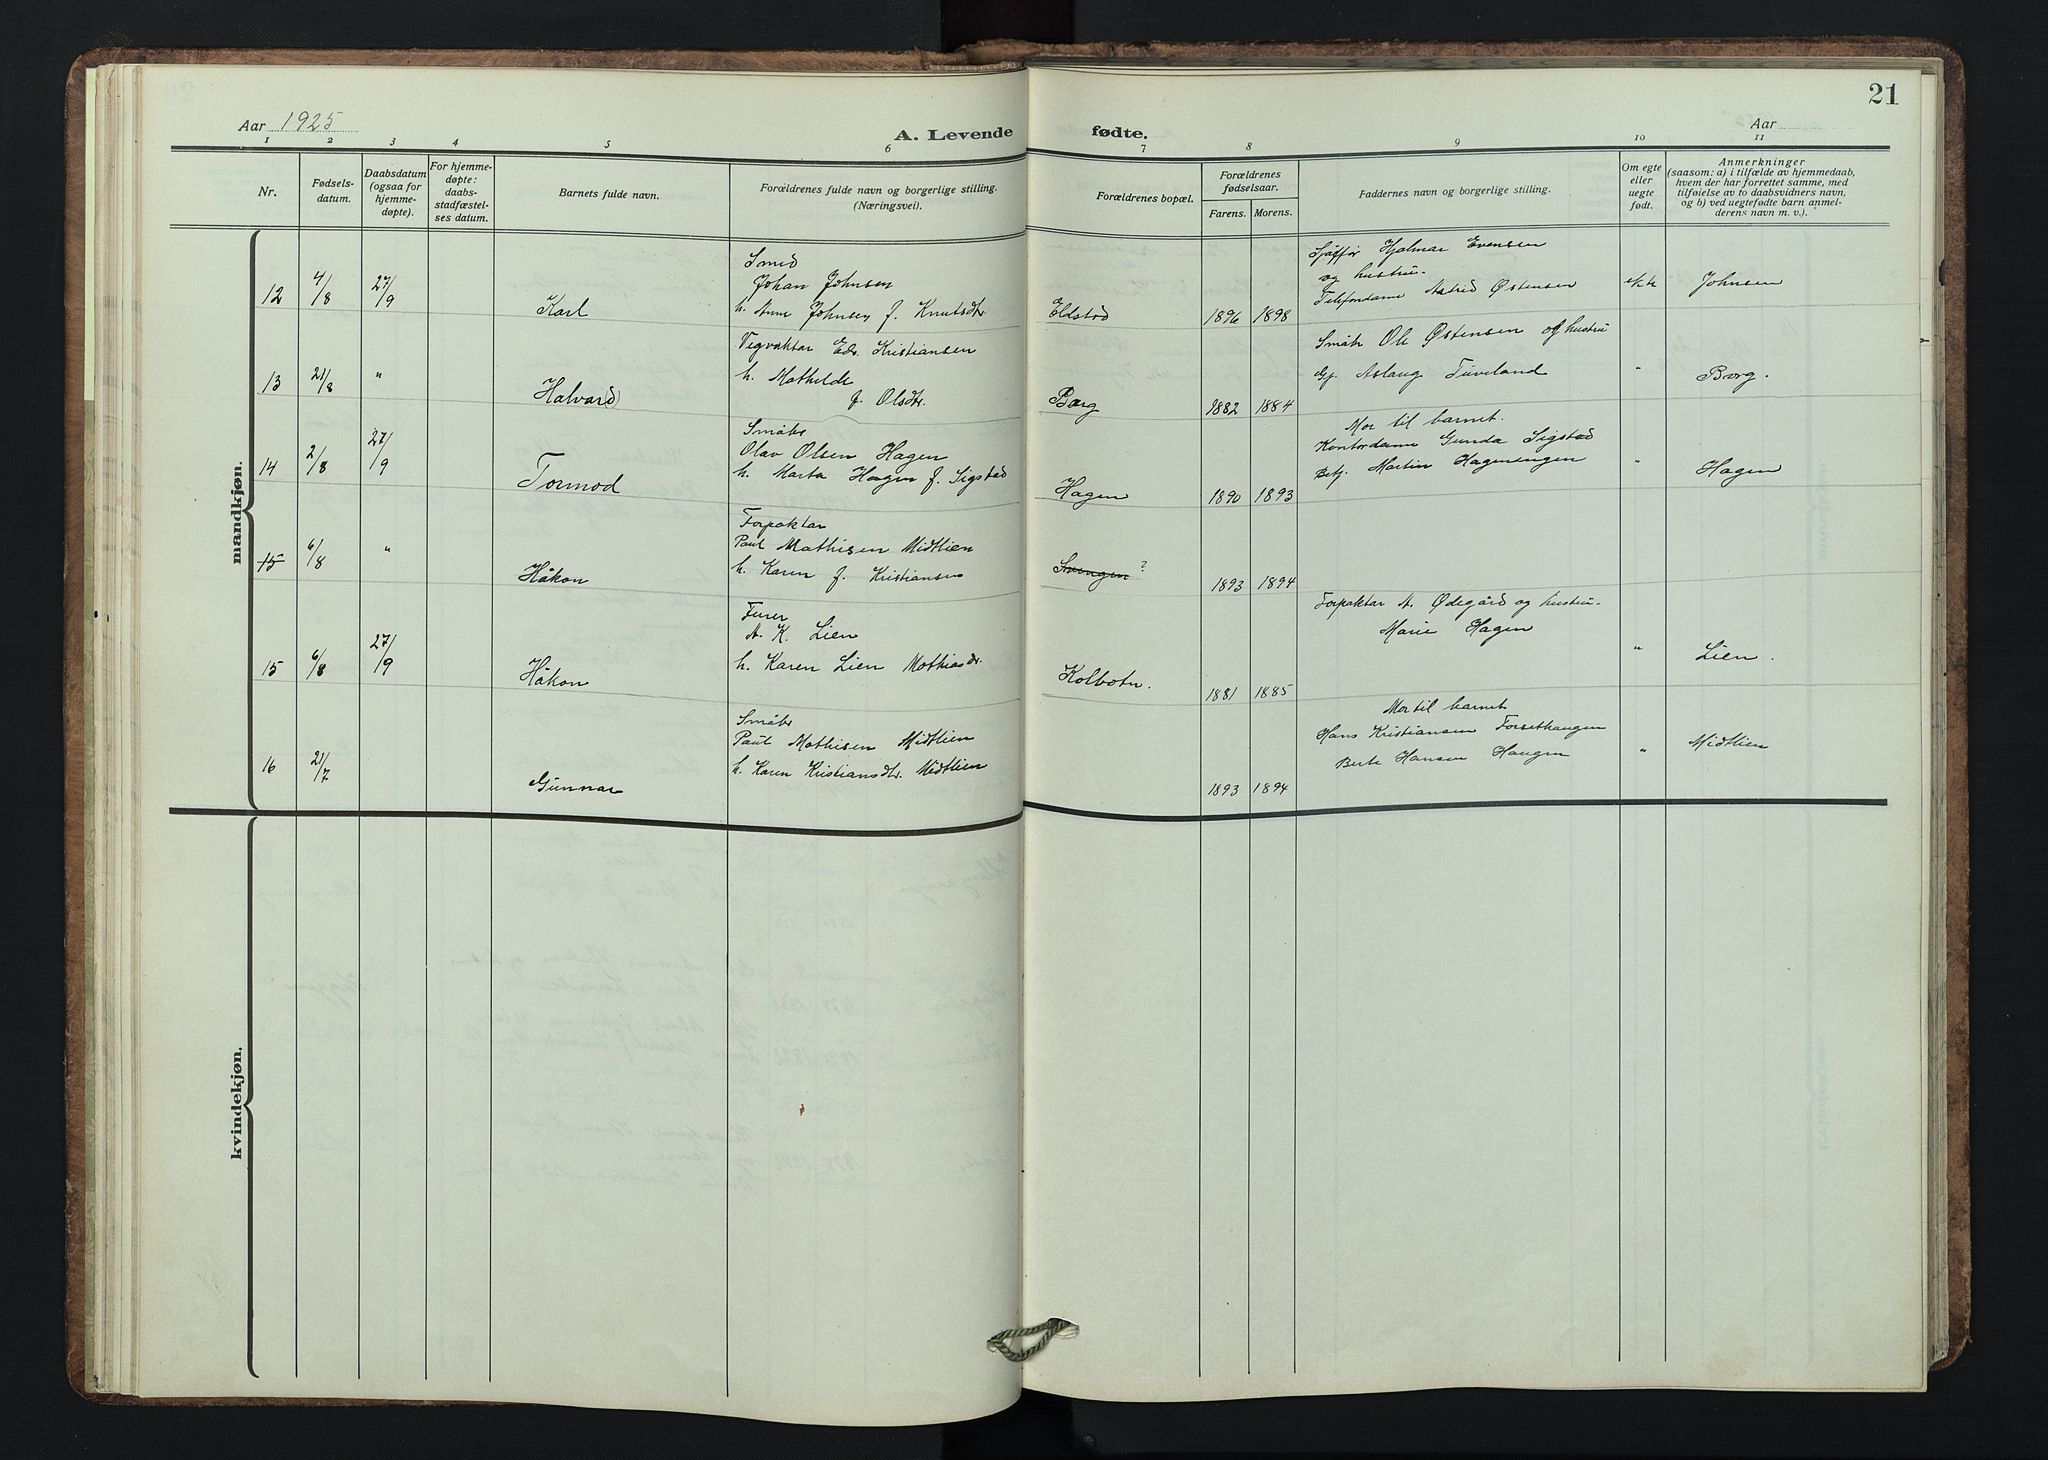 21
Aar 1925
A. Levende fødte.
Aar
1 2 3 4 5 6 7 8 9 10 11
Nr.
Fødsels-
datum.
Daabsdatum
(ogsaa for
hjemme-
døpte).
For hjemme-
døpte:
daabs-
stadfæstel-
ses datum.
Barnets fulde navn.
Forældrenes fulde navn og borgerlige stilling.
(Næringsvei).
Forældrenes bopæl.
Forældrenes
fødselsaar.
Farens. Morens.
Faddernes navn og borgerlige stilling.
Om egte
eller
uegte
født.
Anmerkninger
(saasom: a) i tilfælde av hjemmedaab,
hvem der har forrettet samme, med
tilføielse av to daabsvidners navn,
og b) ved uegtefødte barn anmel-
derens navn m. v.).
mandkjøn.
12 4/8 27/9 Karl
Smed
Johan Johnsen
h. Anne Johnsen f. Knutsdtr.
Elstad 1896 1898
Sjåffør Hjalmar Evensen
og hustru.
Telefondame Astrid Østensen
ekte Johnsen
13 21/8 " Halvar(d)
Vegvaktar Edv. Kristiansen
h. Mathilde
f. Olsdtr.
Borg 1882 1884
Småbr Ole Østensen og hustru
Gj. Aslaug Tuveland
" Borg.
14 2/8 27/9 Tormod
Småbr
Olav Olsen Hagen
h. Marta Hagen f. Sigstad
Hagen 1890 1893
Mor til barnet.
Kontordame Gunda Sigstad
Betj. Martin Hagenengen
" Hagen
15 6/8 " Håkon
Forpaktar
Paul Mathisen Midtlien
h. Karen f. Kristiansen
? 1893 1894
15 6/8 27/9 Håkon
Furer
A. K. Lien
h. Karen Lien Mathiasdr.
Kolbotn. 1881 1885
Forpaktar A. Ødegård og hustru.
Marie Hagen
" Lien.
16 21/7 Gunnar
Småbr
Paul Mathisen Midtlien
h. Karen Kristiansdtr. Midtlien
1893 1894
Mor til barnet
Hans Kristiansen Forsethaugen
Berte Hansen Haugen
" Midtlien
kvindekjøn.